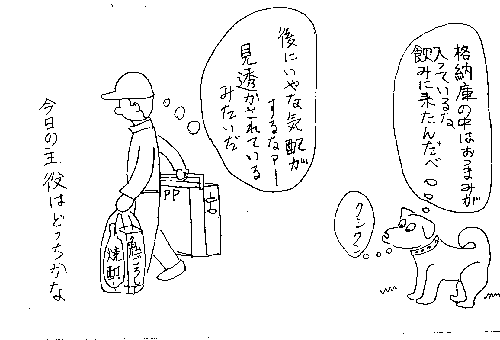 格納庫の中はおつまみが
入っているな、
飲みに来たんだべ
クンクン
後にいやな気配が
するなァー
見透かされている
みたいだ
PP
鬼ごろし
焼酎
今日の主役はどっちかな